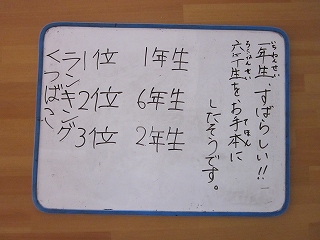 いちねんせい
一年生、すばらしい!!
ろくねんせい てほん
六年生をお手本に
したそうです。
くつばこ
ランキング
1位 1年生
2位 6年生
3位 2年生